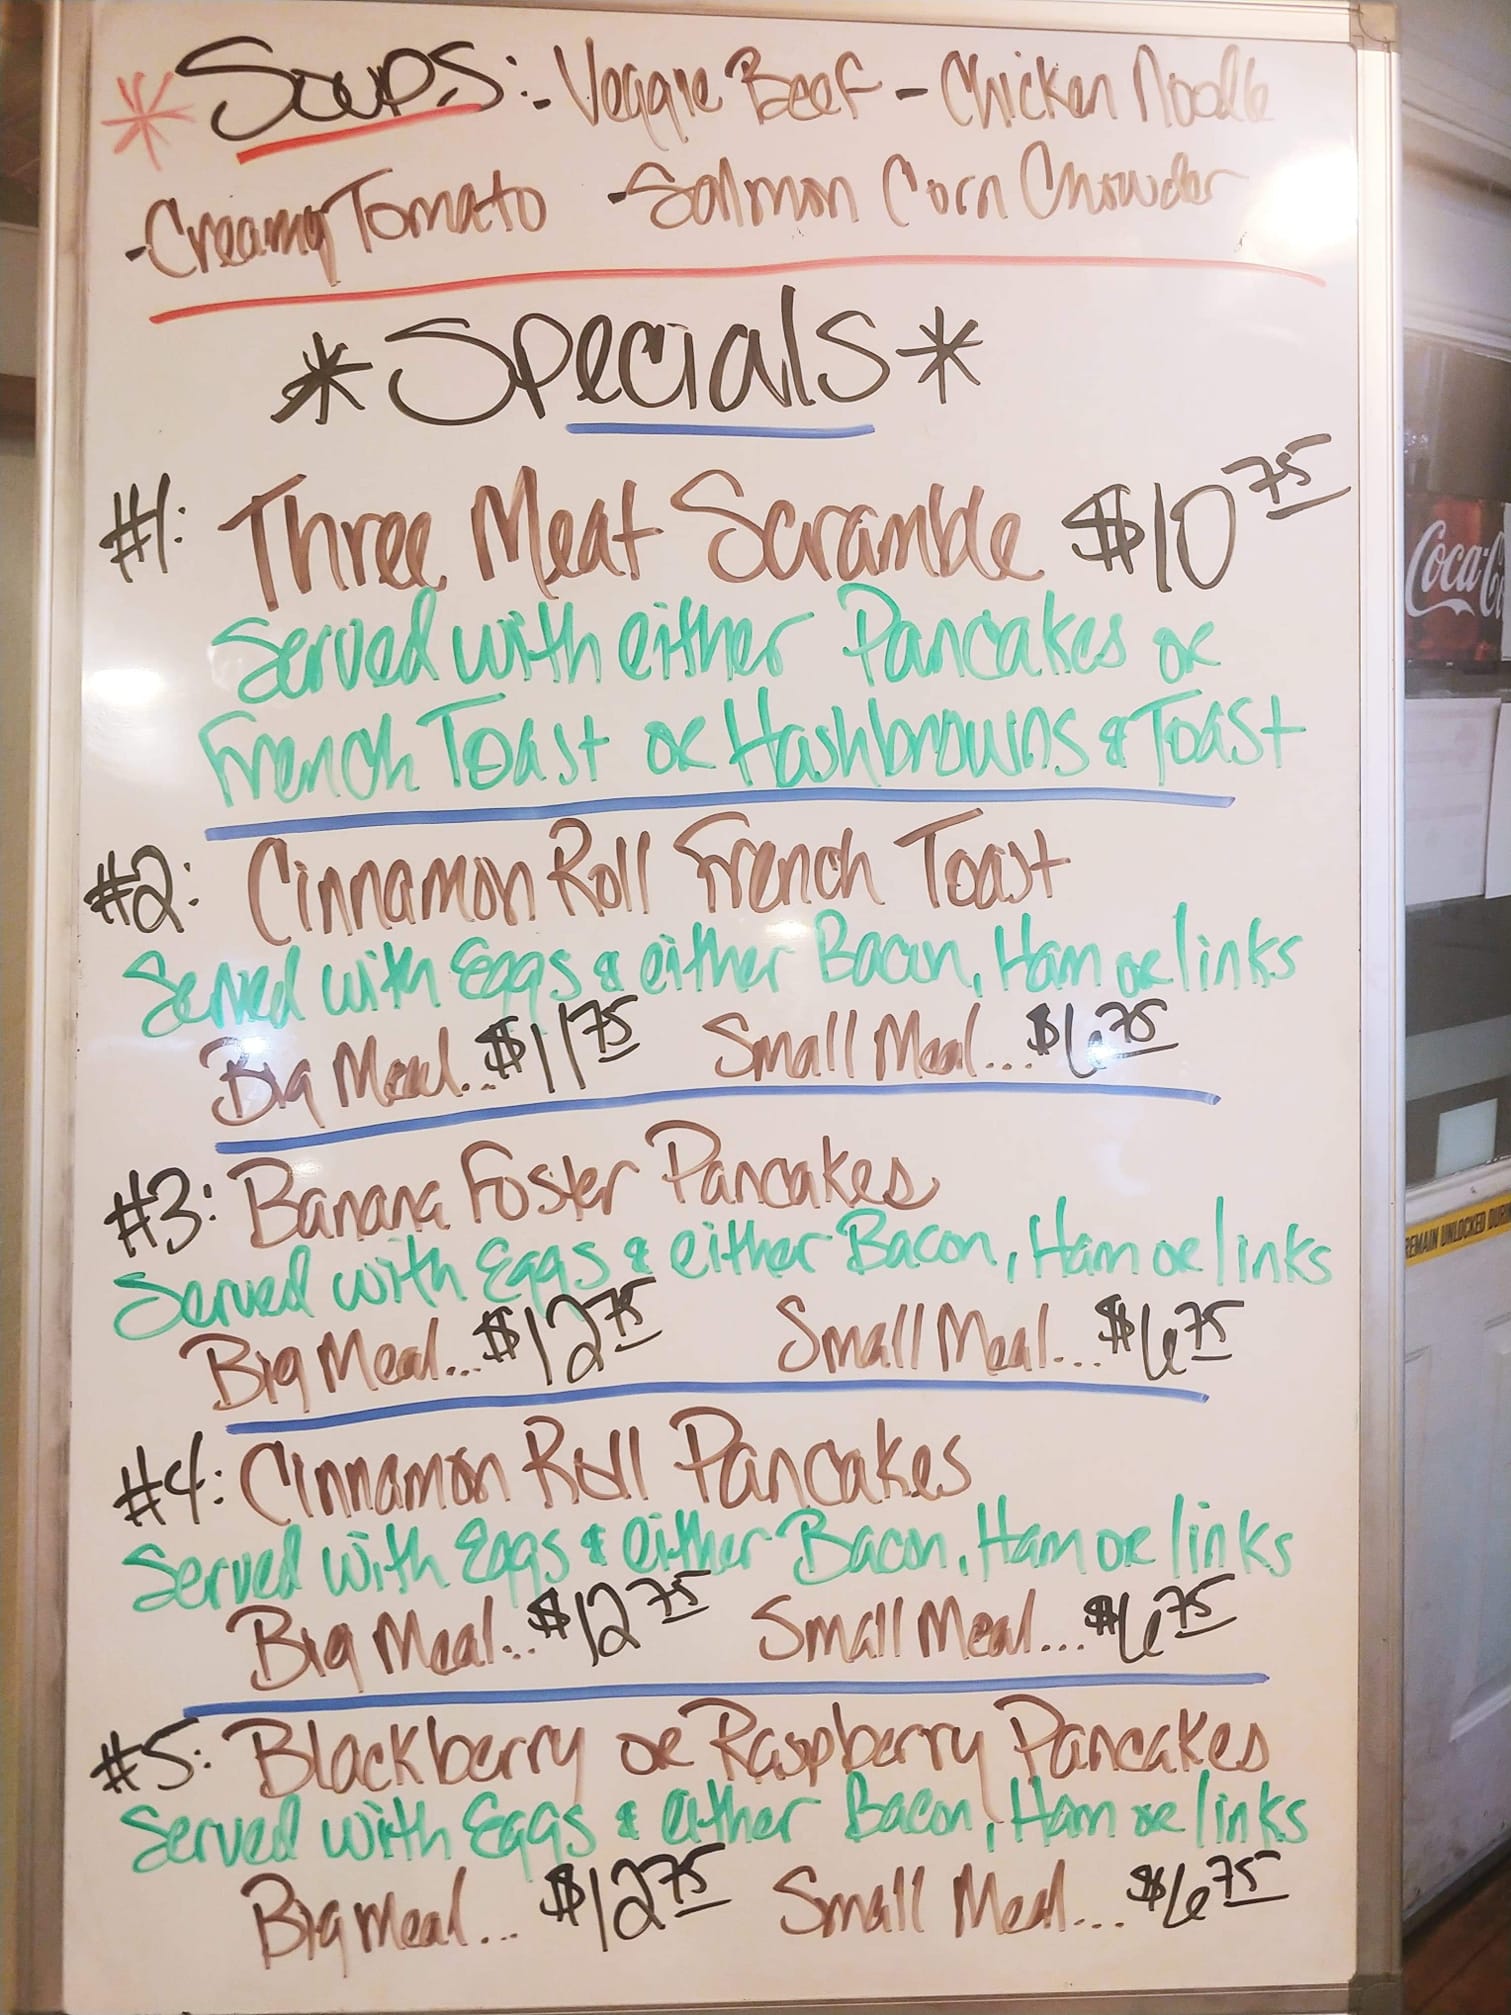 * Soups: - Veggie Beef - Chicken Noodle
- Creamy Tomato - Salmon Corn Chowder
* Specials *
#1: Three Meat Scramble $10 75
Served with either Pancakes or
French Toast or Hashbrowns & Toast
#2: Cinnamon Roll French Toast
Served with Eggs & either Bacon, Ham or links
Big Meal... $11 75 Small Meal.... $6 75
#3: Banana Foster Pancakes
Served with Eggs & either Bacon, Ham or links
Big Meal... $12 75 Small Meal... $6 75
#4: Cinnamon Roll Pancakes
Served with Eggs & either Bacon, Ham or links
Big Meal... $12 75 Small Meal... $6 75
#5: Blackberry or Raspberry Pancakes
Served with Eggs & either Bacon, Ham or links
Big Meal... $12 75 Small Meal... $6 75
Coca-C
REMAIN UNLOCKED DURIN